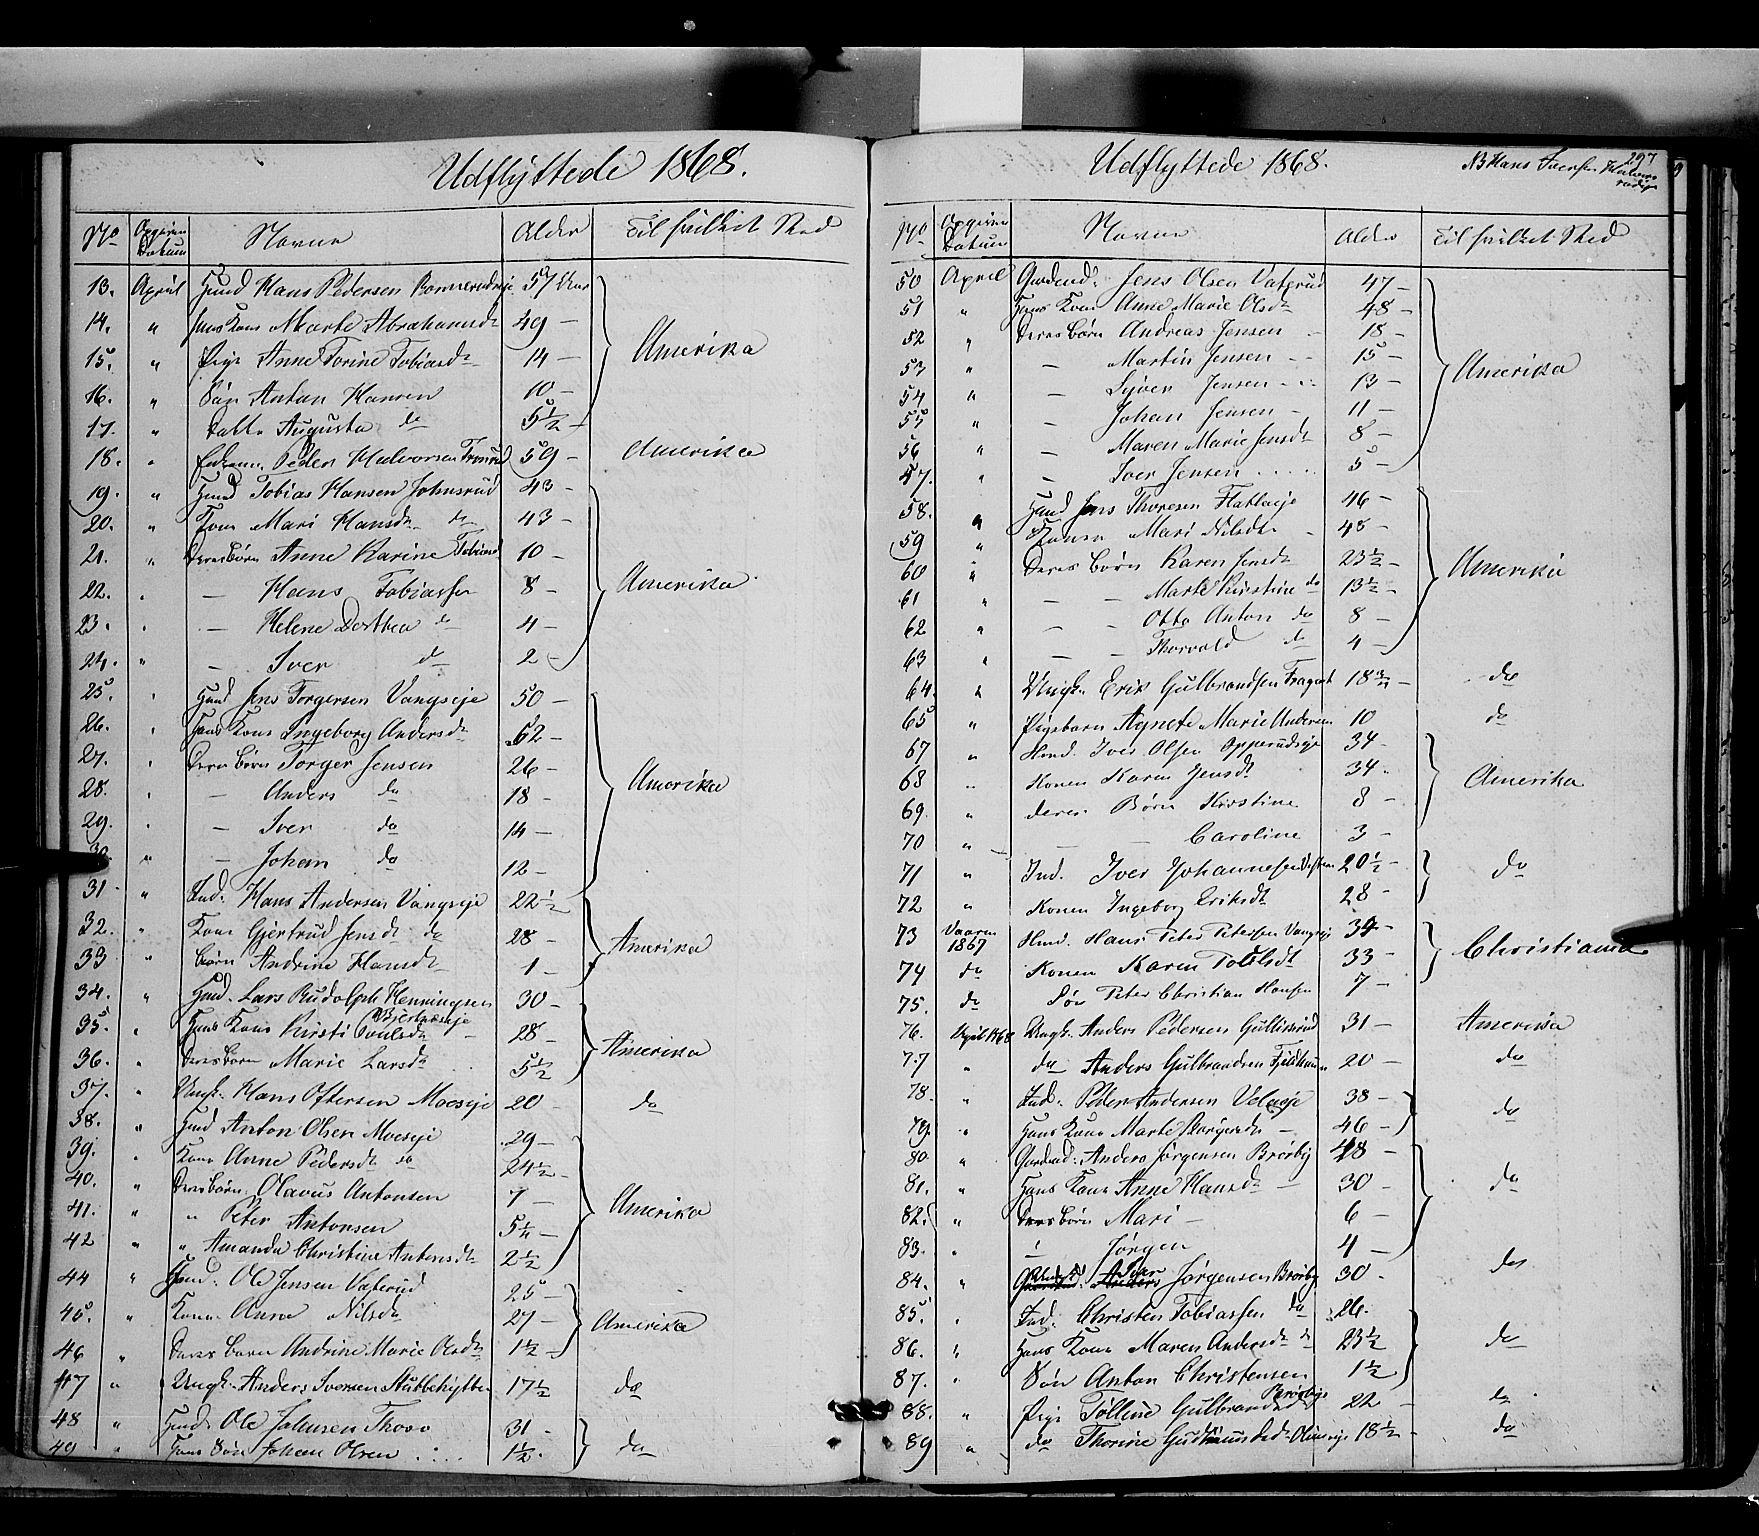 Udflyttede 1868.
No Opgiven Datum Navne Alder Til hvilket Sted
13. April Huusd Hans Pedersen Bonnerudeje 57 Aar
14. " hans Kone Marte Abrahamsdr 49 — Amerika
15. " Pige Anne Torine Tobiasdr 14 —
16. " Søn Anton Hansen 10 —
17. " Datter Augusta do 5½ —
18. " Peder Halvorsen 59 — Amerika
19. " Huusd Tobias Hansen Johnsrud 43 —
20. " Kone Mari Hansdr do 43 —
21. " Deres Børn Anne Karine Tobiasd 10 —
22. " — Hans Tobiassen 8 — Amerika
23. " — Helene Dorthea do 4 —
24. " — Iver do 2 —
25. " Huusd Jens Torgersen Vangseje 50 —
26. " Hans Kone Ingeborg Andersdr 52 —
27. " Deres Børn Torger Jensen 26 —
28. " — Anders do 18 — Amerika
29. " — Iver do 14 —
30. " — Johan do 12 —
31 " Ind. Hans Andersen Vangseje 22½
32. " Kone Gjertrud Jensdr do 28 — Amerika
33 " Børn Andrine Hansdr 1 —
34. " Huusd. Lars Rudolph Henningsen 30 —
35. " Hans Kone Kirsti Poulsdr 28 —
36. " Deres Børn Marie Larsdr 5½ Amerika
37. " Ungk. Hans Oftersen Moeseje 20 do
38. " Huusd Anton Olsen Moeseje 29 —
39. " Kone Anne Pedersdr do 24½
40. " Deres Børn Olavus Antonsen 7 — Amerika
41. " " Peter Antonsen 5¼
42 " " Amanda Christine Antonsdr 2½
44 " Huusd. Ole Jensen Vaterud 25 —
45. " Kone Anne Nilsdr 27 — Amerika
46 " Deres Børn Andrine Marie Olsdr 1½ —
47 " Ungk. Anders Iversen Stubbehytten 17½ do
48 " Huusd. Ole Johnsen 31 —
49 " Hans Søn Johan Olsen 1½ do
Udflyttede 1868.
NB Hans 297
No Opgiven Datum Navne Alder Til hvilket Sted
50 April Gaardmd. Jens Olsen Vaterud 47 —
51 " Hans Kone Anne Marie Olsdr 48 —
52 " Deres Børn Andreas Jensen 18 —
53 " — Martin Jensen 15 —
54 " — Syver Jensen 13 — Amerika
55 " — Johan Jensen 11 —
56 " — Maren Marie Jensdr 8 —
57. " — Iver Jensen 5 —
58. " Huusd Jens Thoresen 46 —
59 " Konen Mari Nilsdr 48 —
60 " Deres Børn Karen Jensdr 23½ — Amerika
61 " — — Marte Kirstine do 13½ —
62 " — — Otto Anton do 8 —
63 " — — Thorvald do 4 —
64. " Ungk. Erik Gulbrandsen 18 — do
65 " Pigebarn Agnete Marie Andersen 10 do
67 " Huusd. Iver Olsen Opperudseje 34 —
68 " Konen Karen Jensdr 34 Amerika
69. " deres Børn Kirstine 8 —
70 " — — Caroline 3 —
71 " Ind. Iver Johannesen 20½ — do
72 " Konen Ingeborg Eriksdr 28 —
73 Vaaren 1867 Huusd. Hans Peter Petersen Vangseje 34 —
74 do Konen Karen 33 — Christiania
75. do Søn Peter Christian Hansen 7 —
76. April 1868 Ungk. Anders Pedersen 31 — Amerika
77 " do Anders Gulbrandsen 20 — do
78. " Ind. Peder Andersen 38 —
79. " Hans Kone Marte 46 — do
80. " Gaardmd. Anders Jørgensen Brørby 48 —
81. " Hans Kone Anne Hansdr 30 — do
82. " Deres Børn Mari — 6 —
83. " " Jørgen 4 —
84. " Jørgensen Brørby 30 do
85. " Ind. Christen Tobiassen do 26.
86. " Hans Kone Maren Andersdr do 23½ do
87. " Søn Anton Christensen 1½
88. " Pige Gulbrandsd 22 — do
89 " do Thorine 18½ — do